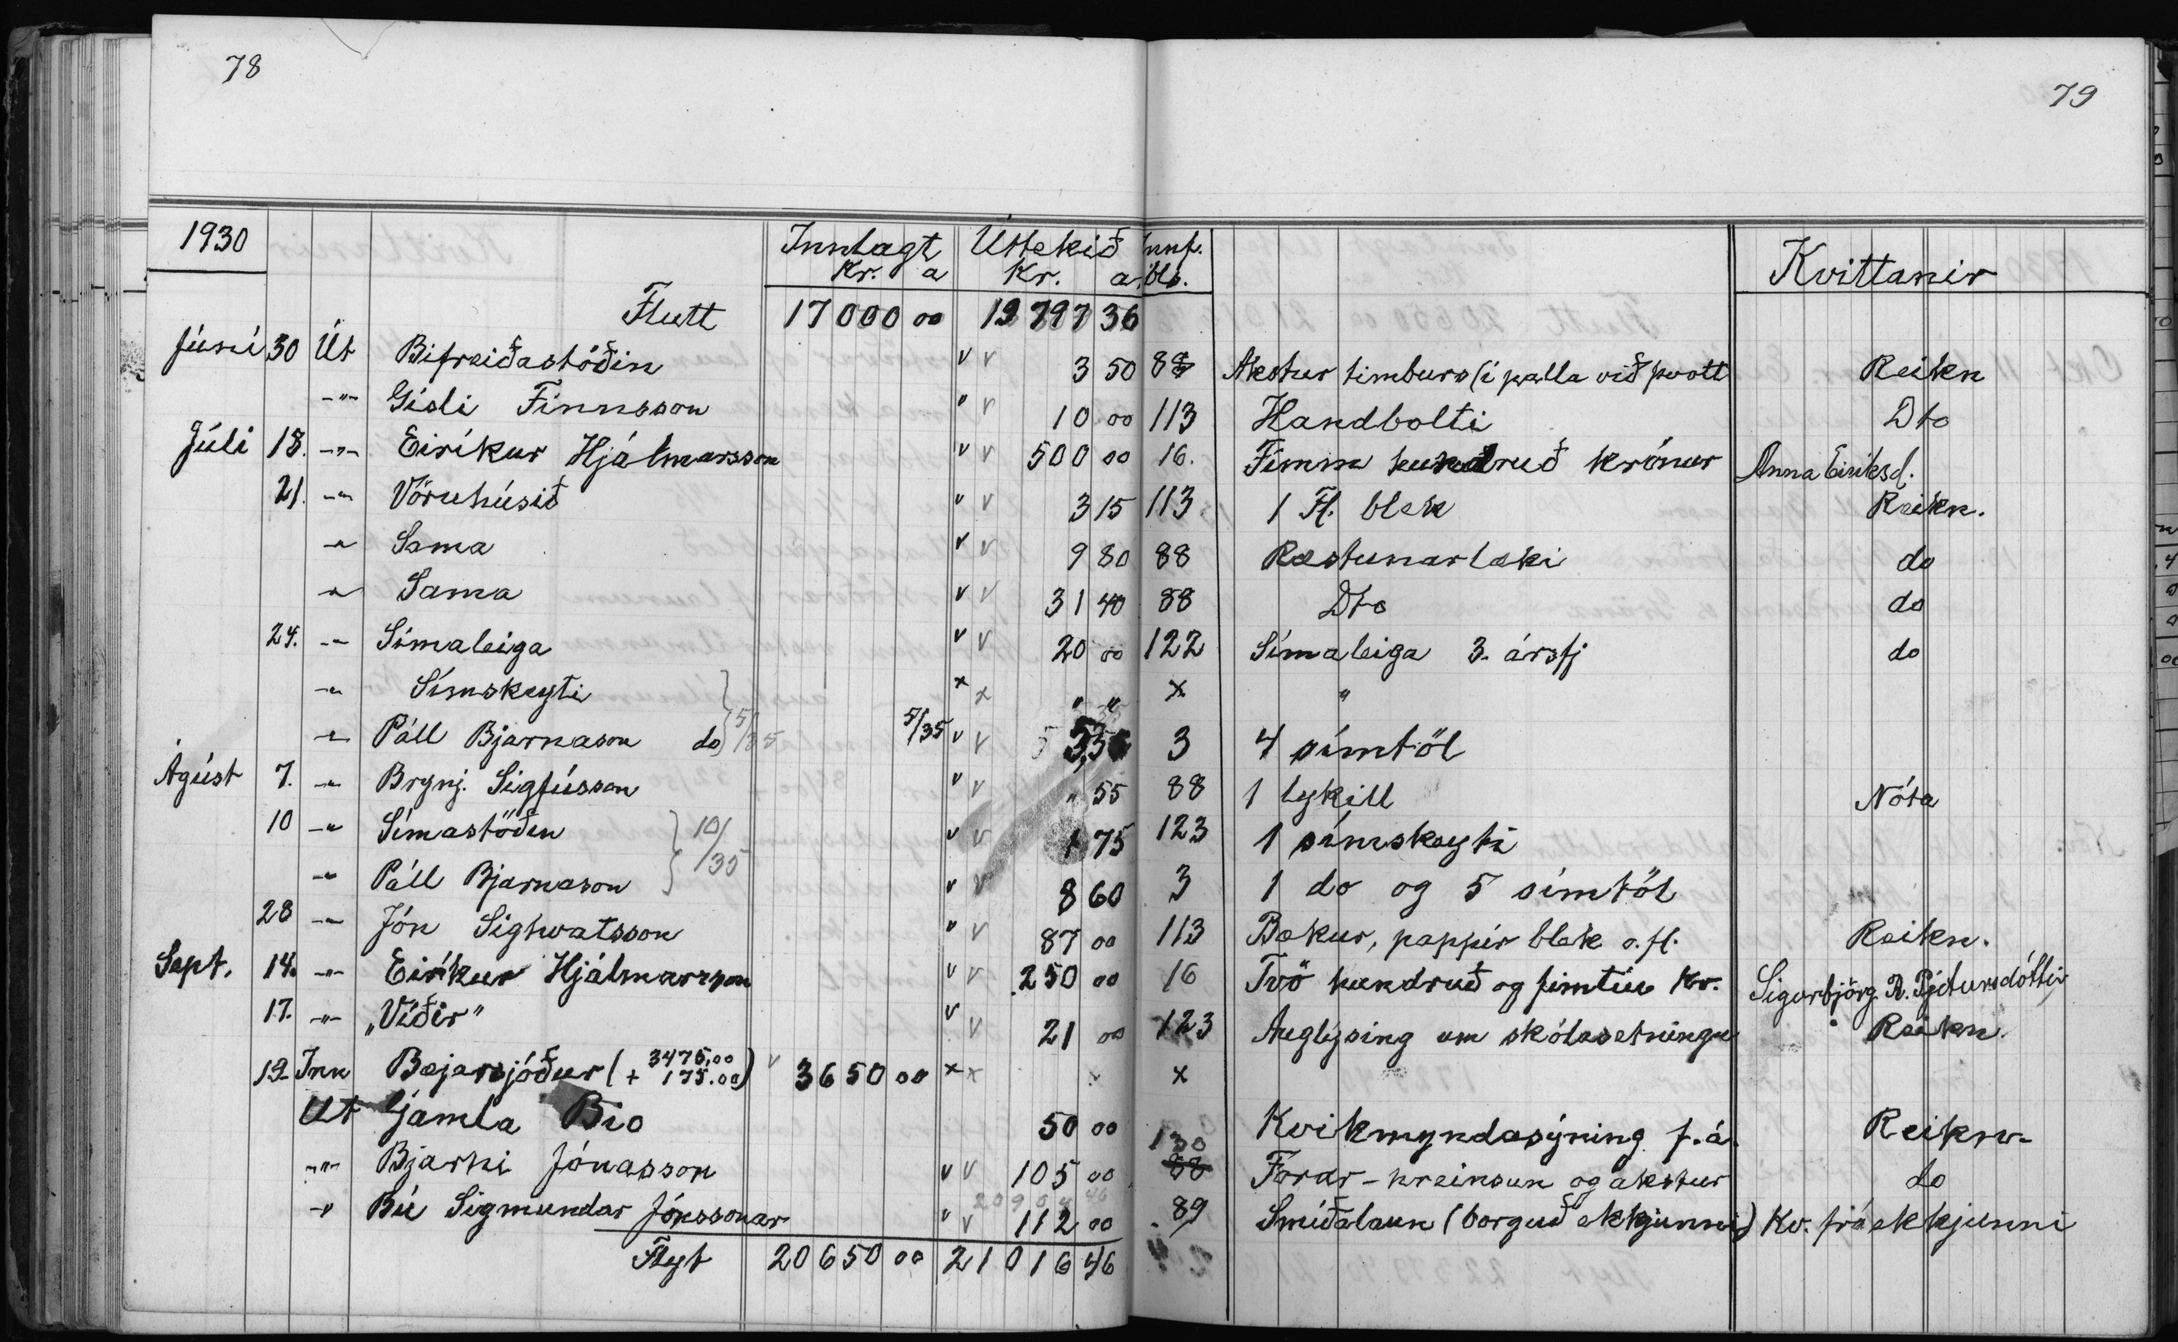 78
79
1930 Innlagt Úttekið Innf.
Kr. a Kr. a. bls. Kvittanir
Flutt 17000 00 19797 36
Júní 30 Út Bifreiðastöðin v v 3 50 88 Akstur timburs (í palla við þvott Reikn
-"- Gísli Finnsson " v 10 00 113 Handbolti Dto
Júlí 18. -"- Eiríkur Hjálmarsson " v 500 00 16. Fimm hundruð krónur Anna Eiríksd.
21. -"- Vöruhúsið " v 3 15 113 1 Fl. blek Reikn.
-"- Sama v v 9 80 88 Ræstunartæki do
-"- Sama v v 31 40 88 Dto do
24. -"- Símaleiga v v 20 00 122 Símaleiga 3. ársfj do
-"- Símskeyti x x " " x "
-"- Páll Bjarnason do 5/35 5/35 v v 3 4 símtöl
Ágúst 7. -"- Brynj. Sigfússon v v " 55 88 1 lykill Nóta
10 -"- Símastöðin 10/35 v v 1 75 123 1 símskeyti
-"- Páll Bjarnason v v 8 60 3 1 do og 5 símtöl
28 -"- Jón Sighvatsson " v 87 00 113 Bækur, pappír blek o.fl. Reikn.
Sept. 14. -"- Eiríkur Hjálmarsson v v 250 00 16 Tvö hundruð og fimtíu kr. Sigurbjörg R. Pjetursdóttir
17. -"- "Víðir" v v 21 00 123 Auglýsing um skólasetningu Reikn.
19. Inn Bæjarsjóður (3475,00 + 175.00) v 3650 00 x x x
Út Gamla Bio 50 00 130 Kvikmyndasýning f.á. Reikn.
-"- Bjarni Jónasson v v 105 00 88 Forar-hreinsun og akstur do
-"- Bú Sigmundar Jónssonar " v 112 00 89 Smíðalaun (borguð ekkjunni) Kv. frá ekkjunni
Flyt 20650 00 21016 46